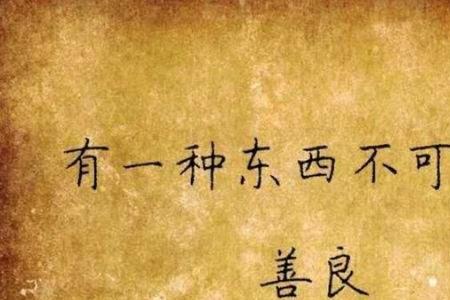 有一种东西不可
善良